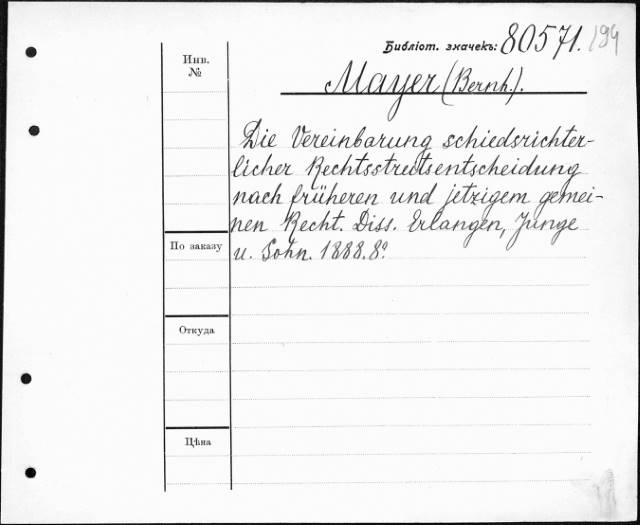 Библіот. значекъ: 80571. 194
Инв.
№
Mayer (Bernh.).
Die Vereinbarung schiedsrichter-
licher Rechtsstreitsentscheidung
nach früheren und jetzigem gemei-
nen Recht. Diss. Erlangen, Junge
u. Sohn. 1888. 8º.
По заказу
Откуда
Цѣна